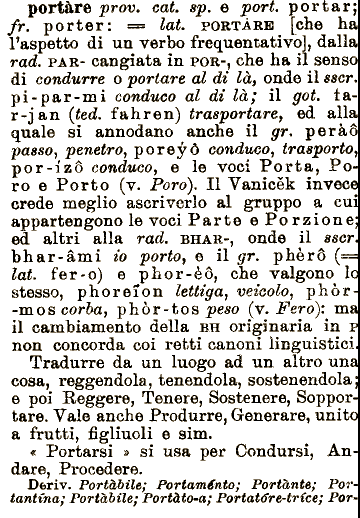 portàre prov. cat. sp. e port. portar;
fr. porter: = lat. PORTÀRE [che ha
l'aspetto di un verbo frequentativo], dalla
rad. PAR- cangiata in POR-, che ha il senso
di condurre o portare al di là, onde il sscr.
pi-par-mi conduco al di là; il got. fa-
r-jan (ted. fahren) trasportare, ed alla
quale si annodano anche il gr. peràô
passo, penetro, poreýô conduco, trasporto,
por-ízô conduco, e le voci Porta, Po-
ro e Porto (v. Poro). Il Vanicěk invece
crede meglio ascriverlo al gruppo a cui
appartengono le voci Parte e Porzione;
ed altri alla rad. BHAR-, onde il sscr.
bhar-âmi io porto, e il gr. phèrô (=
lat. fer-o) e phor-èô, che valgono lo
stesso, phoreîon lettiga, veicolo, phòr-
-mos corba, phòr-tos peso (v. Fero): ma
il cambiamento della BH originaria in P
non concorda coi retti canoni linguistici.
Tradurre da un luogo ad un altro una
cosa, reggendola, tenendola, sostenendola;
e poi Reggere, Tenere, Sostenere, Soppor-
tare. Vale anche Produrre, Generare, unito
a frutti, figliuoli e sim.
« Portarsi » si usa per Condursi, An-
dare, Procedere.
Deriv. Portàbile; Portaménto; Portànte; Por-
tantína; Portàbile; Portàto-a; Portatóre-tríce; Por-